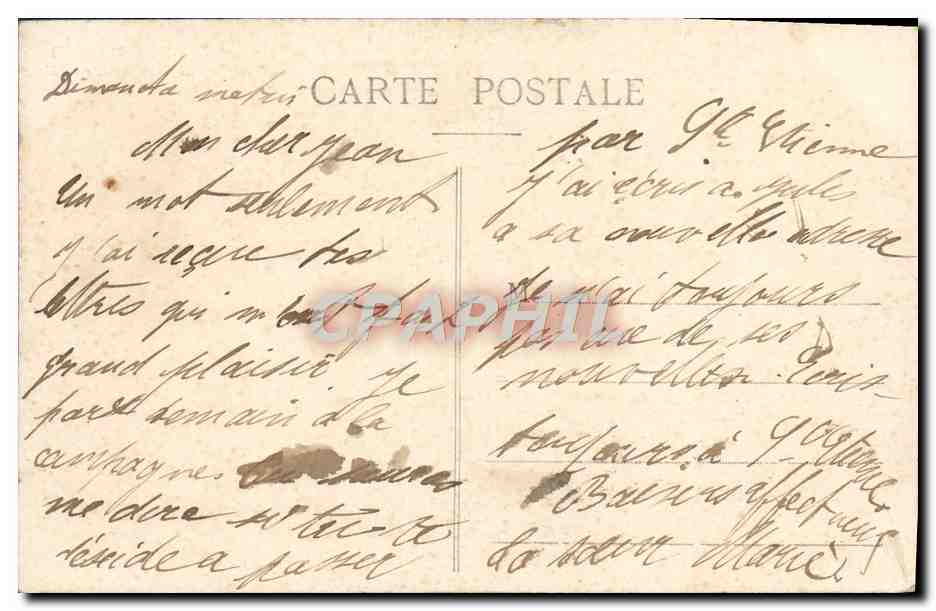 CARTE POSTALE
Mon cher Jean
Un mot seulement
j'ai reçue tes
lettres qui m'ont fait
grand plaisir je
part demain a la
campagne
me dire si tu te
décide a passer
par St Etienne
J'ai écris a Jules
a sa nouvelle adresse
Je n'ai toujours
pas eue de ses
nouvelles. Ecris
toujours à St Etienne
Baisers affectueux
ta sœur Marie
CPAPHIL